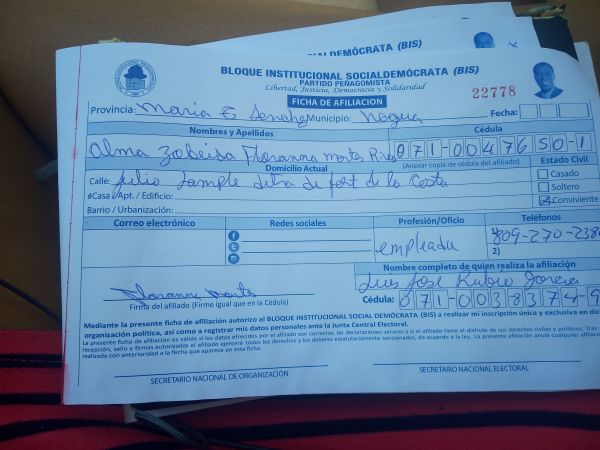 SOCIALDEMÓCRATA (BIS)
BLOQUE INSTITUCIONAL SOCIALDEMÓCRATA (BIS)
PARTIDO PEÑAGOMISTA
Libertad, Justicia, Democracia y Solidaridad
FICHA DE AFILIACION
22778
Provincia: Maria T Municipio: Nagua Fecha:
Nombres y Apellidos Cédula
Alma Zobeida montes 071-0047650-1
Domicilio Actual (Anexar copia de cédula del afiliado) Estado Civil
Calle: Julio de la Costa Casado
#Casa / Apt. / Edificio: Soltero
Barrio / Urbanización: Conviviente
Correo electrónico Redes sociales Profesión/Oficio Teléfonos
empleada 1) 809-270-238
2)
Nombre completo de quien realiza la afiliación
Luis Jose Rubio Garcia
Firma del afiliado (Firme igual que en la Cédula) Cédula: 071-0038374-9
Mediante la presente ficha de afiliación autorizo al BLOQUE INSTITUCIONAL SOCIAL DEMÓCRATA (BIS) a realizar mi inscripción única y exclusiva en dic
organización política, así como a registrar mis datos personales ante la Junta Central Electoral.
La presente ficha de afiliación es válida si los datos ofrecidos por el afiliado son correctos, las declaraciones veraces y si el afiliado tiene el disfrute de sus derechos civiles y políticos. Tras
recepción, sello y firmas autorizadas el afiliado ejercerá todos los derechos y los deberes estatutariamente sancionados, de acuerdo a la ley. La presente afiliación anula cualquier afiliación
realizada con anterioridad a la fecha que aparece en esta ficha.
SECRETARIO NACIONAL DE ORGANIZACIÓN SECRETARIO NACIONAL ELECTORAL